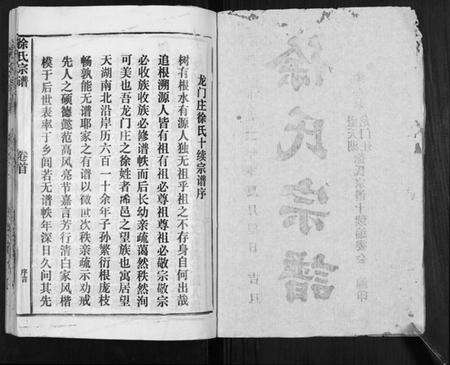 龙门庄徐氏十续宗谱序
树有根水有源人独无祖乎祖之不存身自何出哉
追根溯源人皆有祖有祖必尊祖尊祖必敬宗敬宗
必收族收族必修谱谱帙而后长幼亲疏蔼然秩然洵
可美也吾龙门庄之徐姓者邑之望族也寓居望
天湖南北沿岸历六百一十余年子孙繁衍根庞枝
畅孰能无谱耶家之有谱以叙世次秩亲疏示劝戒
先人之硕德懿范高风亮节嘉言芳行清白家风楷
模于后世表率于乡闾若无谱帙年深日久问其先
徐氏宗谱
卷首
序言
徐氏宗譜